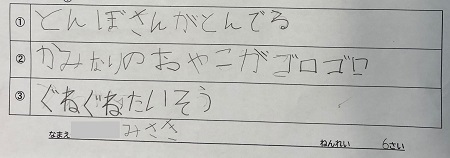 ① とんぼさんがとんでる
② かみなりのおやこがゴロゴロ
③ ぐねぐねたいそう
なまえ みさき ねんれい 6さい